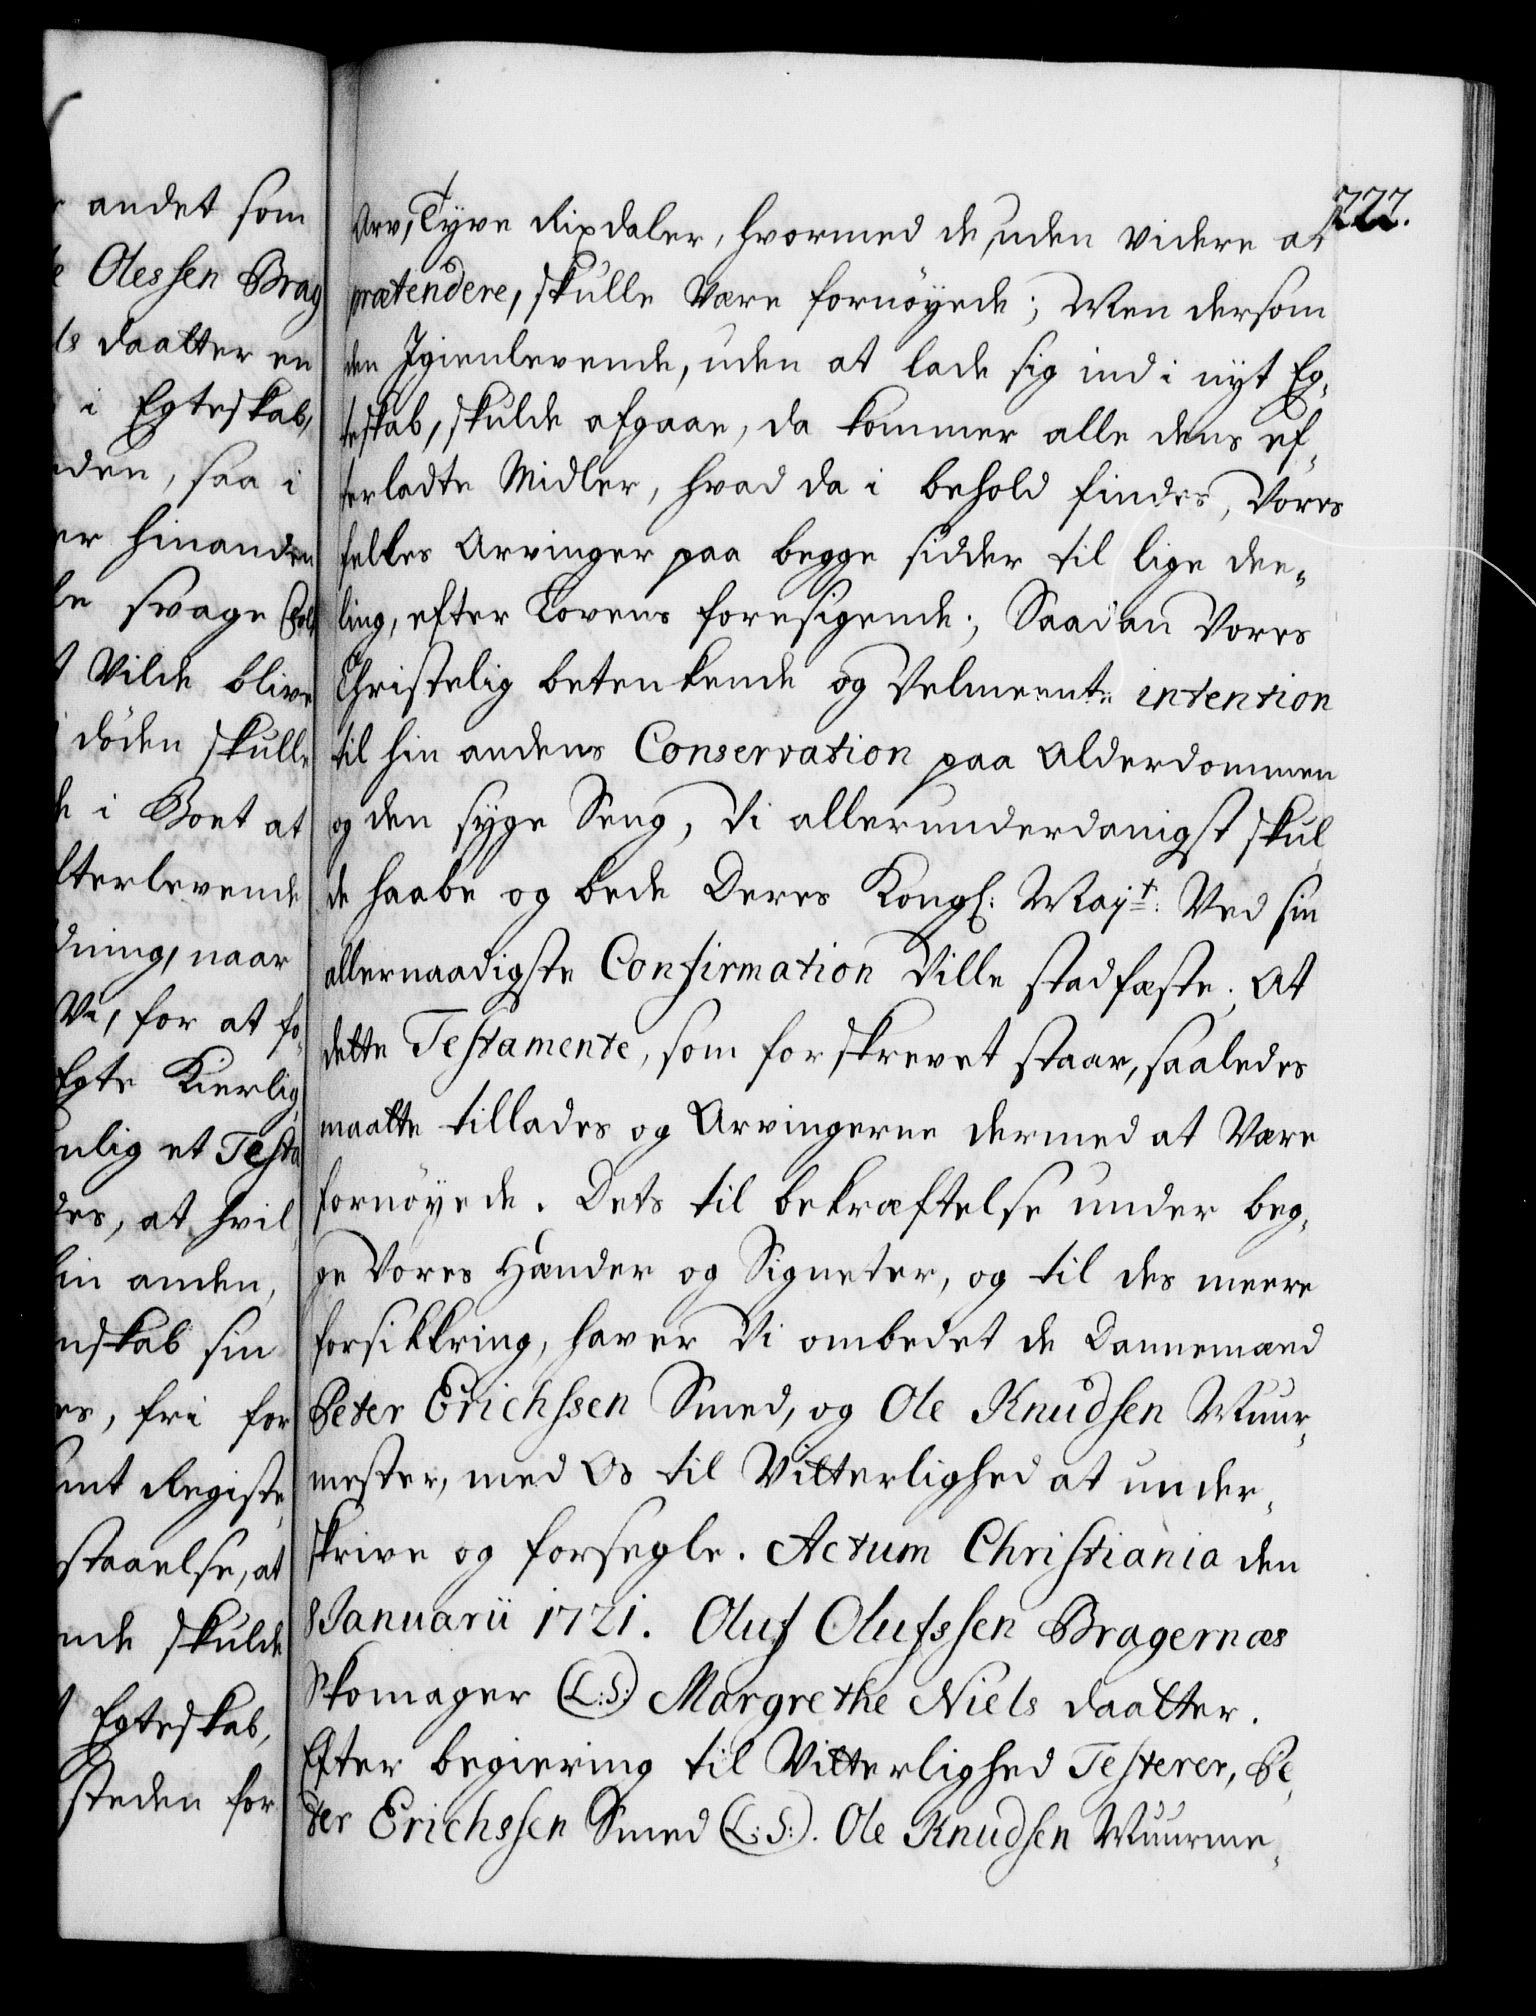 andet som
Olessen Brag
ls daatter en
i Egteskab,
den, saa i
er hinanden
le svage
Vilde blive
döden skulle
i Boet at
fterlevende
dning, naar
Ve, for at fo,
Egte Kierlig,
nlig et Testa
des, at hvil,
hin anden,
nskab sin
es, fri for
mt Registe,
staaelse, at
nde skulde
Egteskab,
steden for
222.
Arv, Tyve Rixdaler, hvormed de, uden videre at
prætendere, skulle Være fornöyede; Men dersom
den Igienlevende, uden at lade sig ind i nyt Eg,
teskab, skulde afgaae, da kommer alle dens ef,
terladte Midler, hvad da i behold findes, Vores
felles Arvinger paa begge sidder til lige dee,
ling, efter Lovens foresigende; Saadan Vores
Christelig betenkende og Velmeente intention
til hin andens Conservation paa Alderdommen
og den syge Seng, Vi allerunderdanigst skul,
de haabe og bede Deres Kongl: Mayt: Ved sin
allernaadigste Confirmation Ville stadfæste; At
dette Testamente, som forskrevet staar, saaledes
maatte tillades og Arvingerne dermed at Være
fornöyede. Dets til bekræftelse under beg,
ge Vores Hænder og Signeter, og til des meere
forsikkring, haver Vi ombedet de Dannemænd
Peter Erichssen Smed, og Ole Knudsen Muur,
mester, med Os til Vitterlighed at under,
skrive og forsegle. Actum Christiania den
8 Januarii 1721. Oluf Olufssen Bragernæs
Skomager (L:S:) Margrethe Niels daatter.
Efter begiering til Vitterlighed Testerer, Pe,
ter Erichssen Smed (L:S:). Ole Knudsen Muurme,